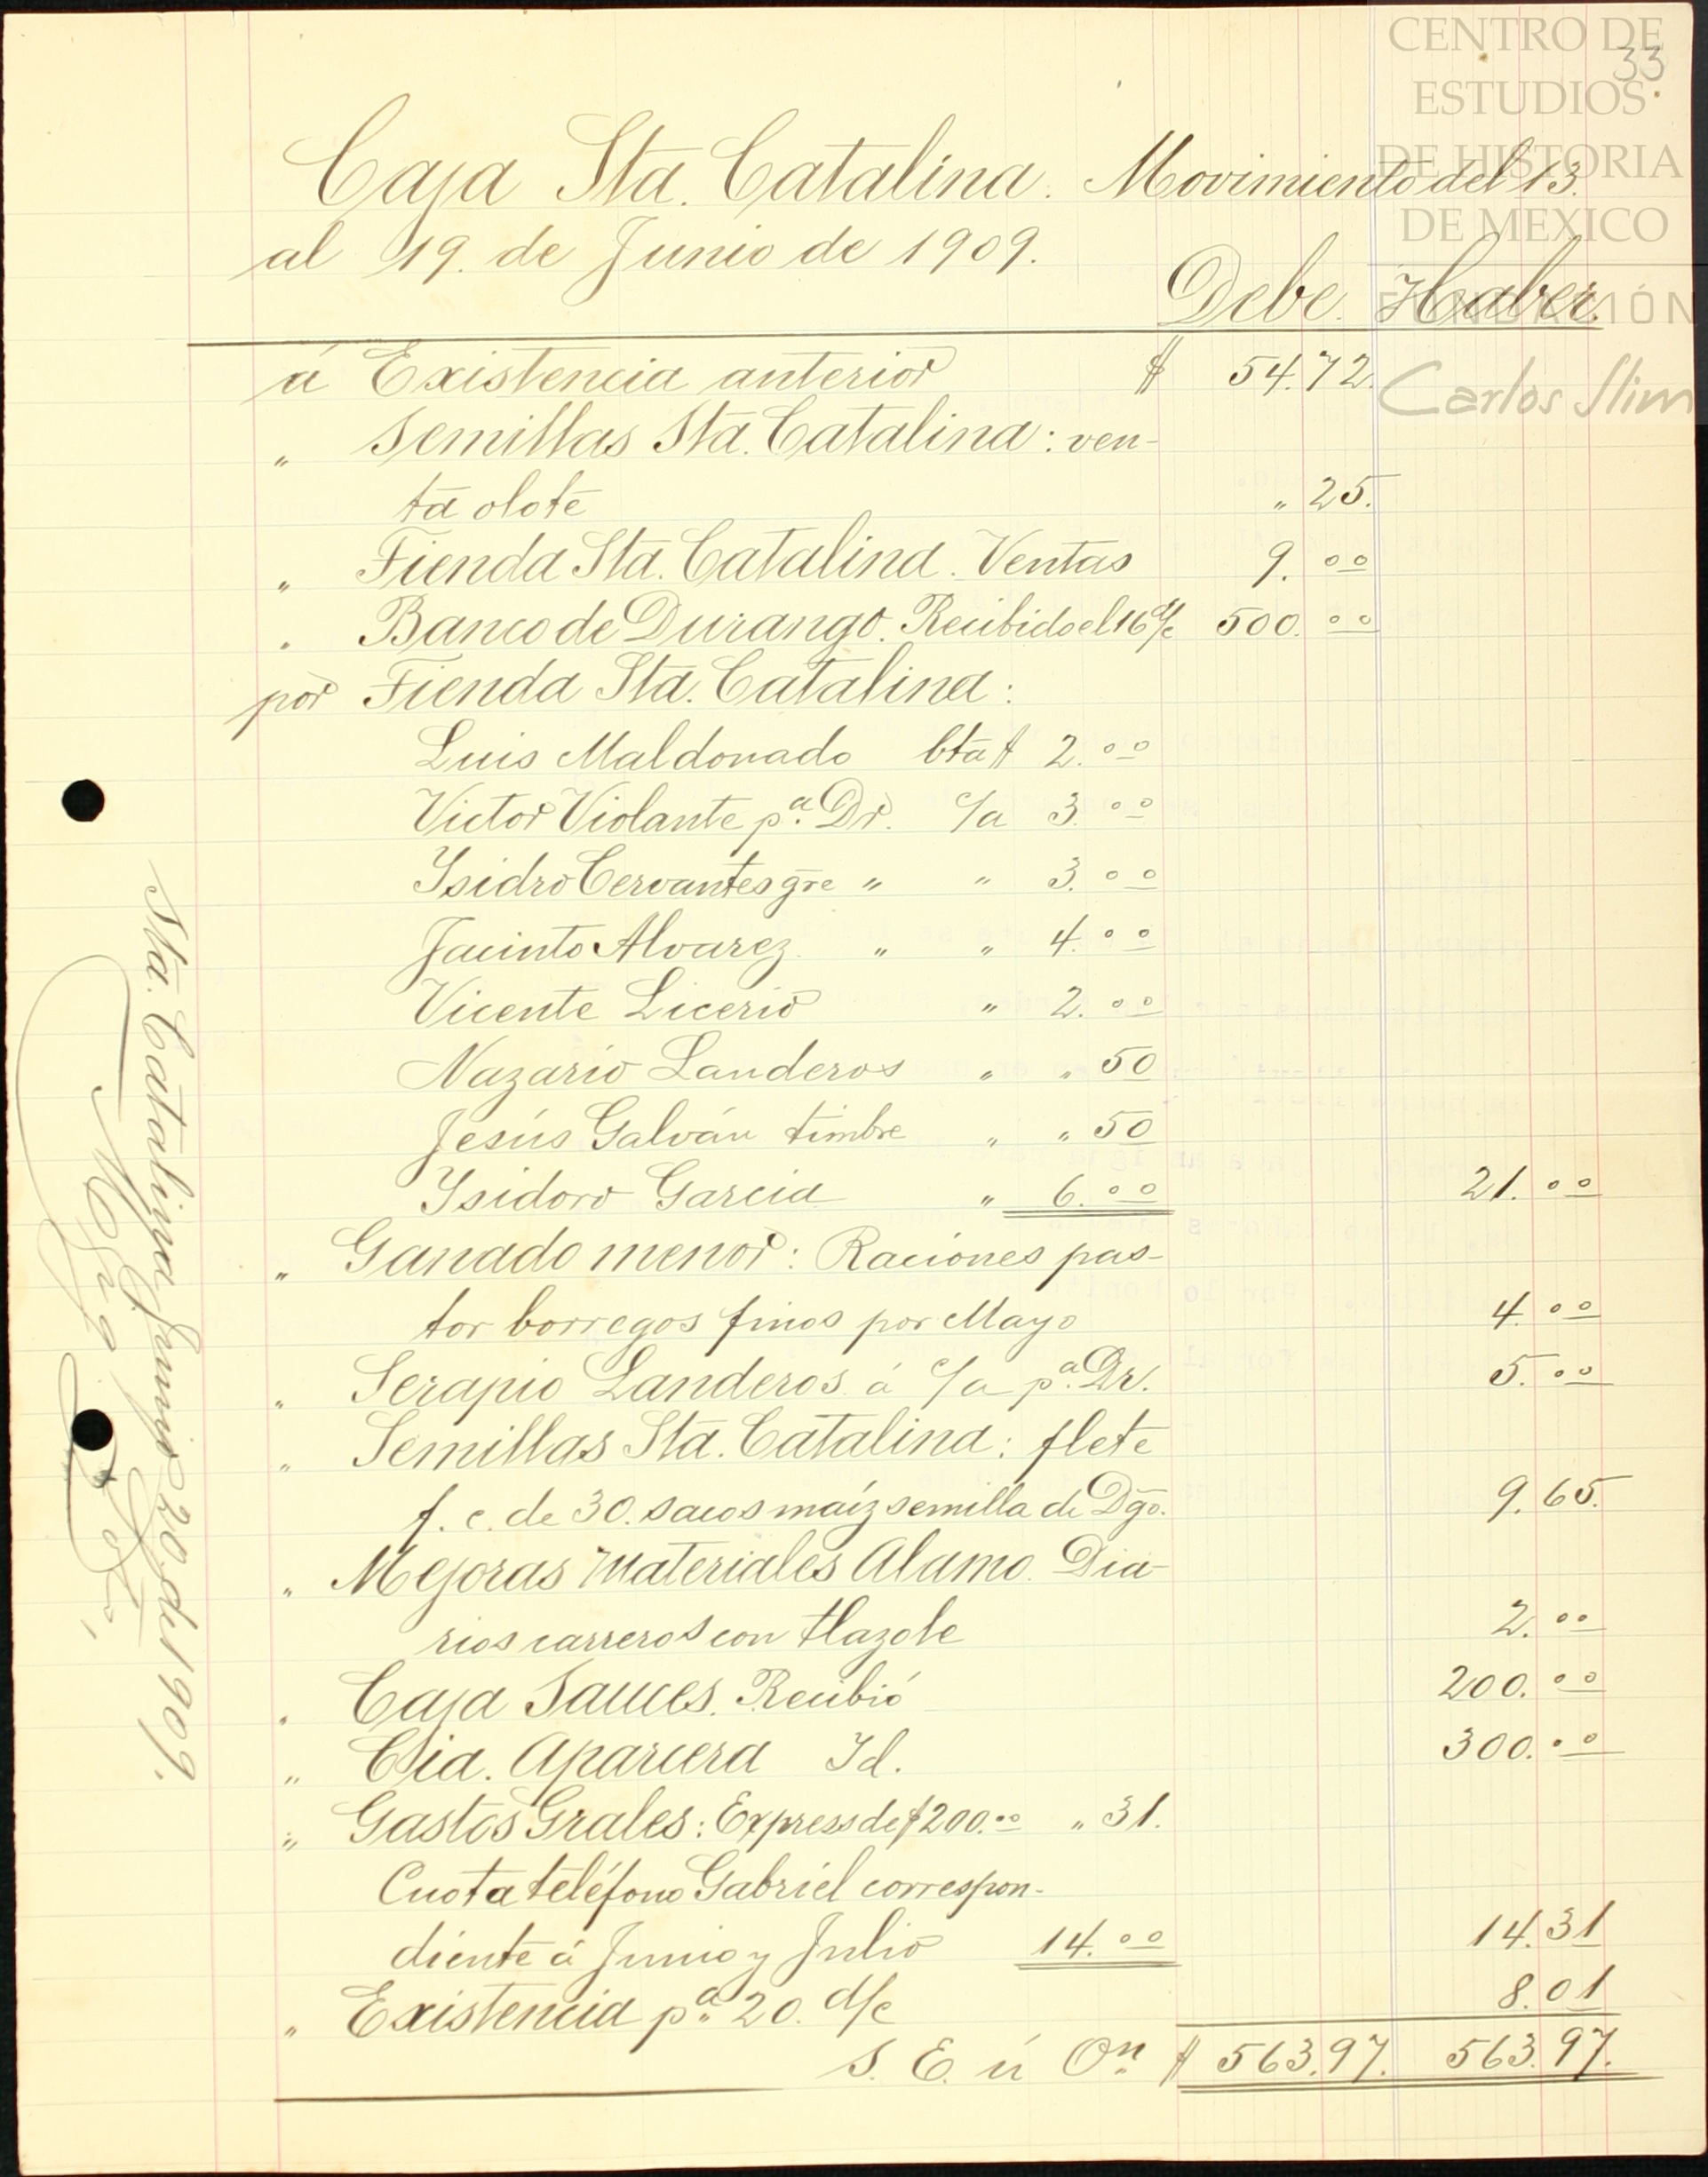 CENTRO DE
ESTUDIOS
DE HISTORIA
DE MEXICO
FUNDACIÓN
Carlos Slim
33
Caja Sta. Catalina. Movimiento del 13.
al 19. de Junio de 1909.
Debe. Haber.
á Existencia anterior $ 54.72.
„ Semillas Sta. Catalina: ven-
ta olote „ 25.
„ Tienda Sta. Catalina. Ventas 9. 00
„ Banco de Durango. Recibido el 16 d/c 500. 00
por Tienda Sta. Catalina:
Luis Maldonado cta $ 2. 00
Victor Violante pa. Dr. c/a 3. 00
Ysidro Cervantes gre „ „ 3. 00
Jacinto Alvarez. „ „ 4. 00
Vicente Licerio „ 2. 00
Nazario Landeros „ „ 50
Jesús Galván timbre „ „ 50
Ysidoro Garcia „ 6. 00 21. 00
„ Ganado menor: Raciones pas-
tor borregos finos por Mayo 4. 00
„ Serapio Landeros. á c/a pa. Dr. 5. 00
„ Semillas Sta. Catalina: flete
f. c. de 30. sacos maíz semilla de Dgo. 9. 65.
„ Mejoras Materiales Alamo. Dia-
rios carreros con tlazole 2. 00
„ Caja Sauces. Recibió 200. 00
„ Cia. Aparcera Id. 300. 00
„ Gastos Grales: Express de $200. 00 „ 31.
Cuota teléfono Gabriel correspon-
diente á Junio y Julio 14. 00 14. 31
„ Existencia pa. 20. d/c 8. 01
S. E. ú On. $ 563.97. 563.97.
Sta. Catalina Junio 20. de 1909.